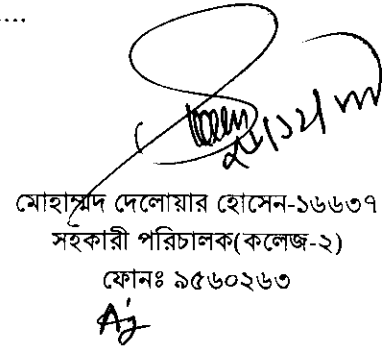 .....
মোহাম্মদ দেলোয়ার হোসেন-১৬৬৩৭
সহকারী পরিচালক(কলেজ-২)
ফোনঃ ৯৫৬০২৬৩